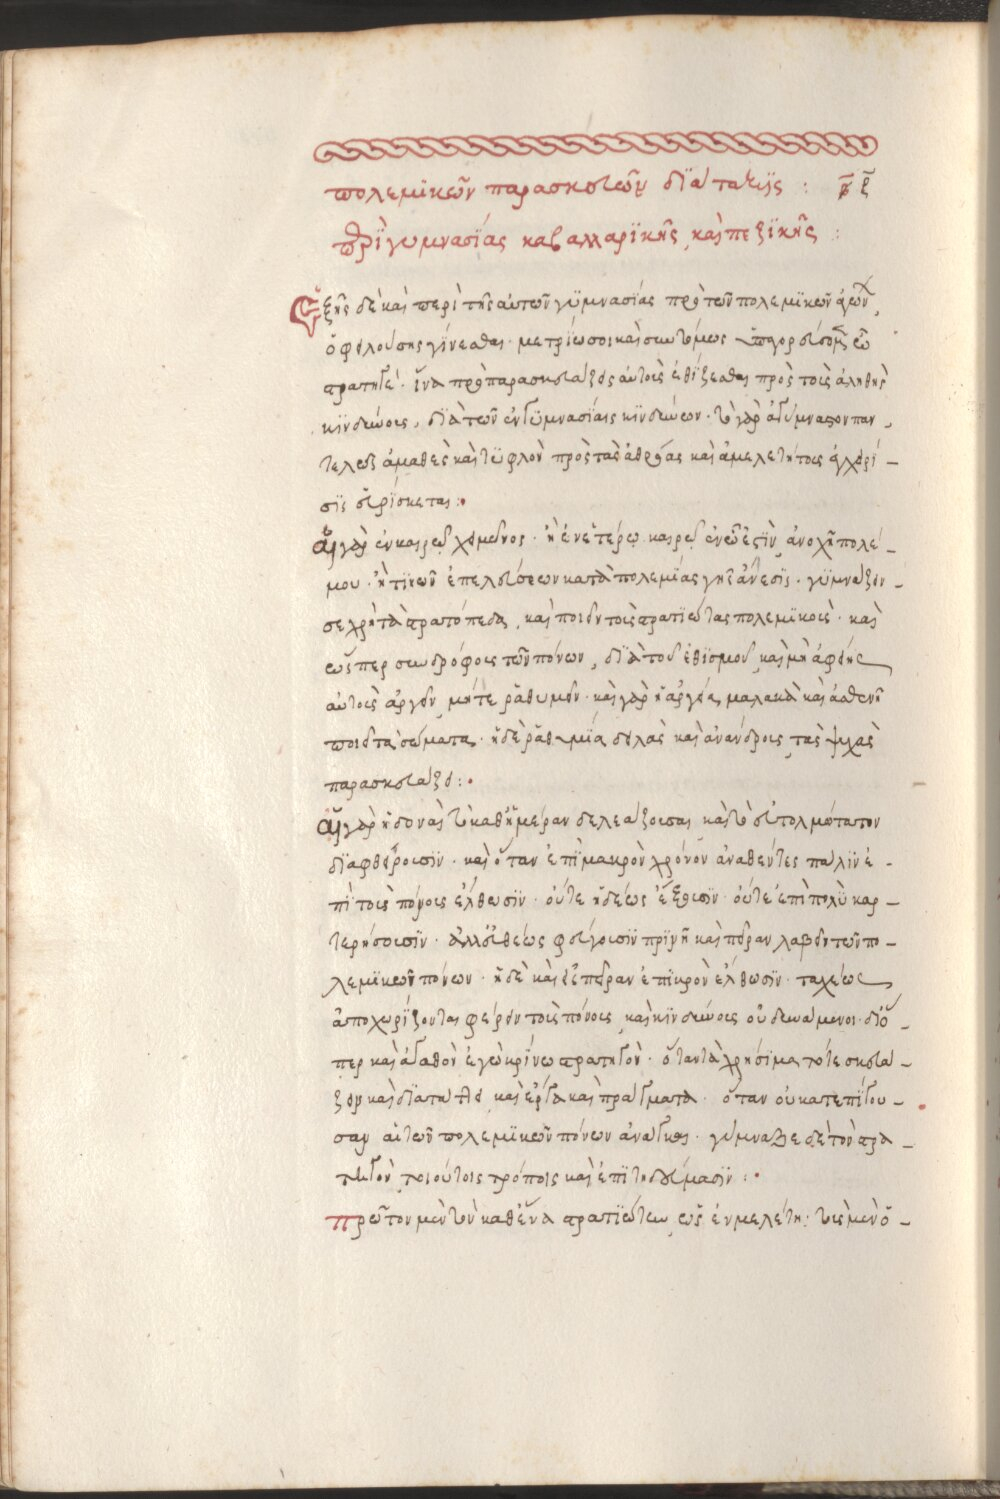 πολεμϊκῶν παρασκευῶν δϊάταξϊς : ζ̅
περὶ γυμνασίας καβαλλαρϊκῆς, καὶ πεζϊκῆς :
Ἑξῆς δὲ καὶ περὶ τῆς αὐτῶν γϋμνασΐας πρὸ τῶν πολεμϊκῶν ἀγών
ὀφειλούσης γίνεσθαι· μετρίως σοι καὶ συντόμως ὑπαγορεύσομεν ὦ
στρατηγέ· ἵνα προπαρασκευάζεις αὐτοὺς ἐθίζεσθαι πρὸς τοὺς ἀληθεῖς
κϊνδύνους, δϊὰ τῶν ἐν γϋμνασίαις κϊνδύνων· τὸ γὰρ ἀγύμναστον παν-
τελῶς ἀμαθὲς καὶ τϋφλὸν πρὸς τὰς ἀθρόας καὶ ἀμελετήτους ἐγχειρί-
σϊς εὑρίσκεται:
Αἰ γὰρ ἐν καιρῷ χειμῶνος· ἢ ἐν ἑτέρῳ καιρῷ ἐν ᾧ ἐστϊν ἀνοχὴ πολέ-
μου· ἢ τϊνῶν ἐπελεύσεων κατὰ πολεμΐας γῆς ἄνεσϊς· γϋμνάζειν
σε χρὴ τὰ στρατόπεδα, καὶ ποιεῖν τοὺς στρατϊώτας πολεμϊκούς· καὶ
ὥσπερ συντρόφους τῶν πόνων, δϊὰ τοῦ ἐθϊσμοῦ καὶ μὴ ἀφεῖναι
αὐτοὺς ἀργεῖν μήτε ῥαθυμεῖν· καὶ γὰρ ἡ ἀργία, μαλακὰ καὶ ἀσθενῆ
ποιεῖ τὰ σώματα· ἡ δὲ ῥαθυμία δειλὰς καὶ ἀνάνδρους τὰς ψυχὰς
παρασκευάζει:
Αἱ γὰρ ἡδοναὶ τὸ καθημέραν δελεάζουσαι καὶ τὸ εὐτολμότατον
δϊαφθείρουσϊν· καὶ ὅταν ἐπὶ μακρὸν χρόνον ἀναθέντες πάλϊν ἐ-
πὶ τοὺς πόνους ἔλθωσϊν· οὔτε ἡδέως ἐξίασϊν· οὔτε ἐπὶ πολὺ καρ-
τερήσουσϊν· ἀλλ' εὐθέως φεύγουσϊν πρὶν ἢ καὶ πεῖραν λαβεῖν τῶν πο-
λεμϊκῶν πόνων· ἢ δὲ καὶ εἰς πεῖραν ἐπὶ μικρὸν ἔλθωσϊν· ταχέως
ἀποχωρίζονται φέρειν τοὺς πόνους καὶ κϊνδύνους οὐ δυνάμενοι· δϊό-
περ καὶ ἀγαθὸν ἐγὼ κρίνω στρατηγὸν· ὅταν τὰ χρήσϊμα τότε σκευά-
ζειν καὶ δϊαπυνθ καὶ ἔργα καὶ πράγματα· ὅταν οὐ κατεπίγου-
σαν αἱ τῶν πολεμϊκῶν πόνων ἀνάγκαι· γύμναζε δὲ τὸν στρα-
τηγὸν τοιούτοις τρόποις καὶ ἐπϊτηδεύμασϊν:
Πρῶτον μὲν τὸν καθ' ἕνα στρατϊώτην ὡς ἐν μελέτῃ: τοὺς μὲν ὁ-